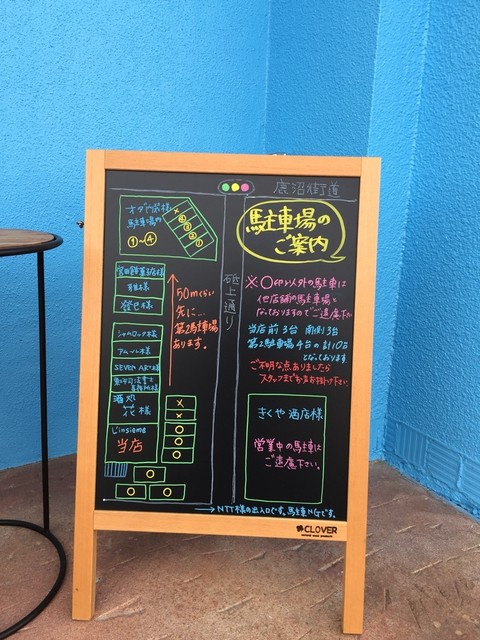 鹿沼街道
駐車場の
ご案内
オダや衣様
駐車場内
①〜④
×
④
③
②
①
砥上通り
50mくらい
先に…
第2駐車場
あります。
シャルロック様
アムール様
SEVEN ART様
酒処
花様
L'insieme
当店
×
×
○
○
○
○
○
○
※○印以外の駐車は
他店舗の駐車場と
なっておりますのでご遠慮下さい
当店前3台 南側3台
第2駐車場4台の計10台
となっております
ご不明な点ありましたら
スタッフまでお声お掛け下さい
きくや酒店様
営業中の駐車は
ご遠慮下さい。
→NTT様の出入口です。駐車NGです。
CLOVER